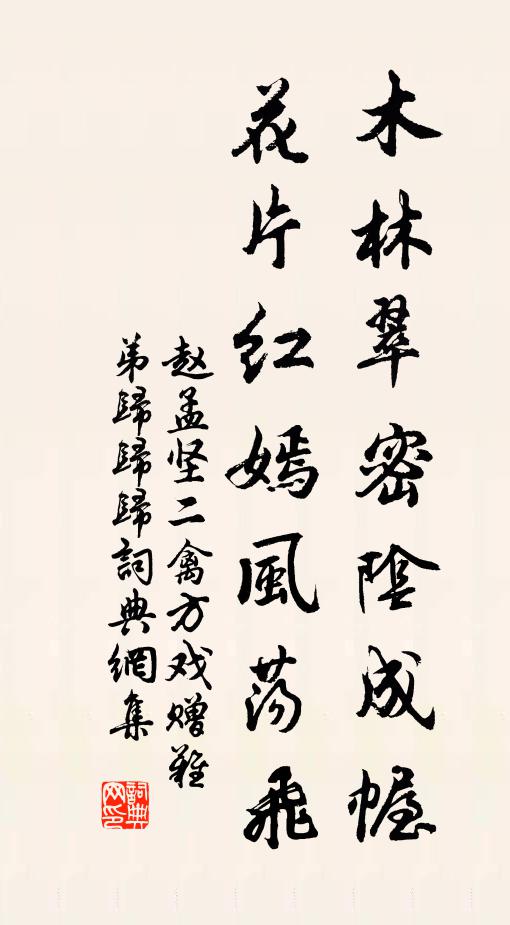 木林翠密陰成幄
花片红嫣風荡飛
赵孟坚二禽方戏赠難
弟歸歸歸詞典網集
詞典网印